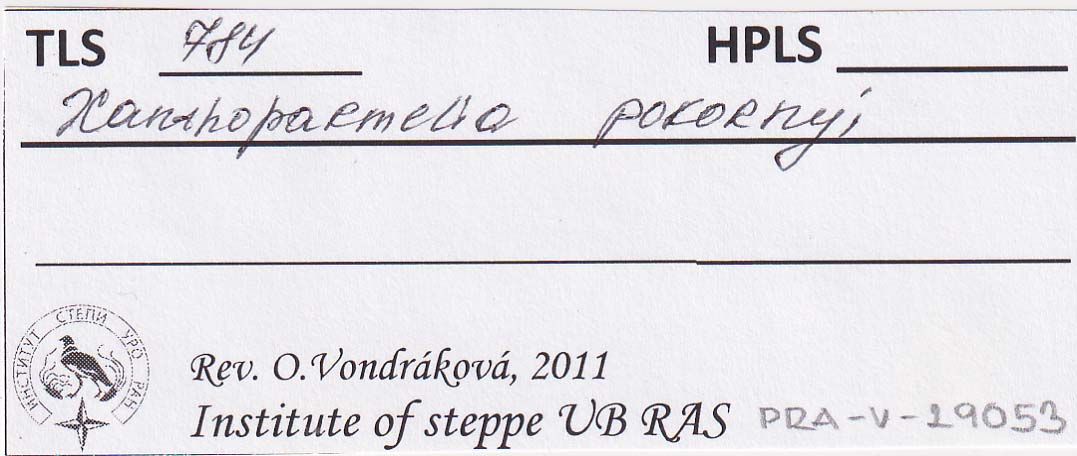 TLS 784 HPLS
Xanthoparmelia pokornyi
ИНСТИТУТ СТЕПИ УРО РАН
Rev. O.Vondráková, 2011
Institute of steppe UB RAS PRA-V-19053